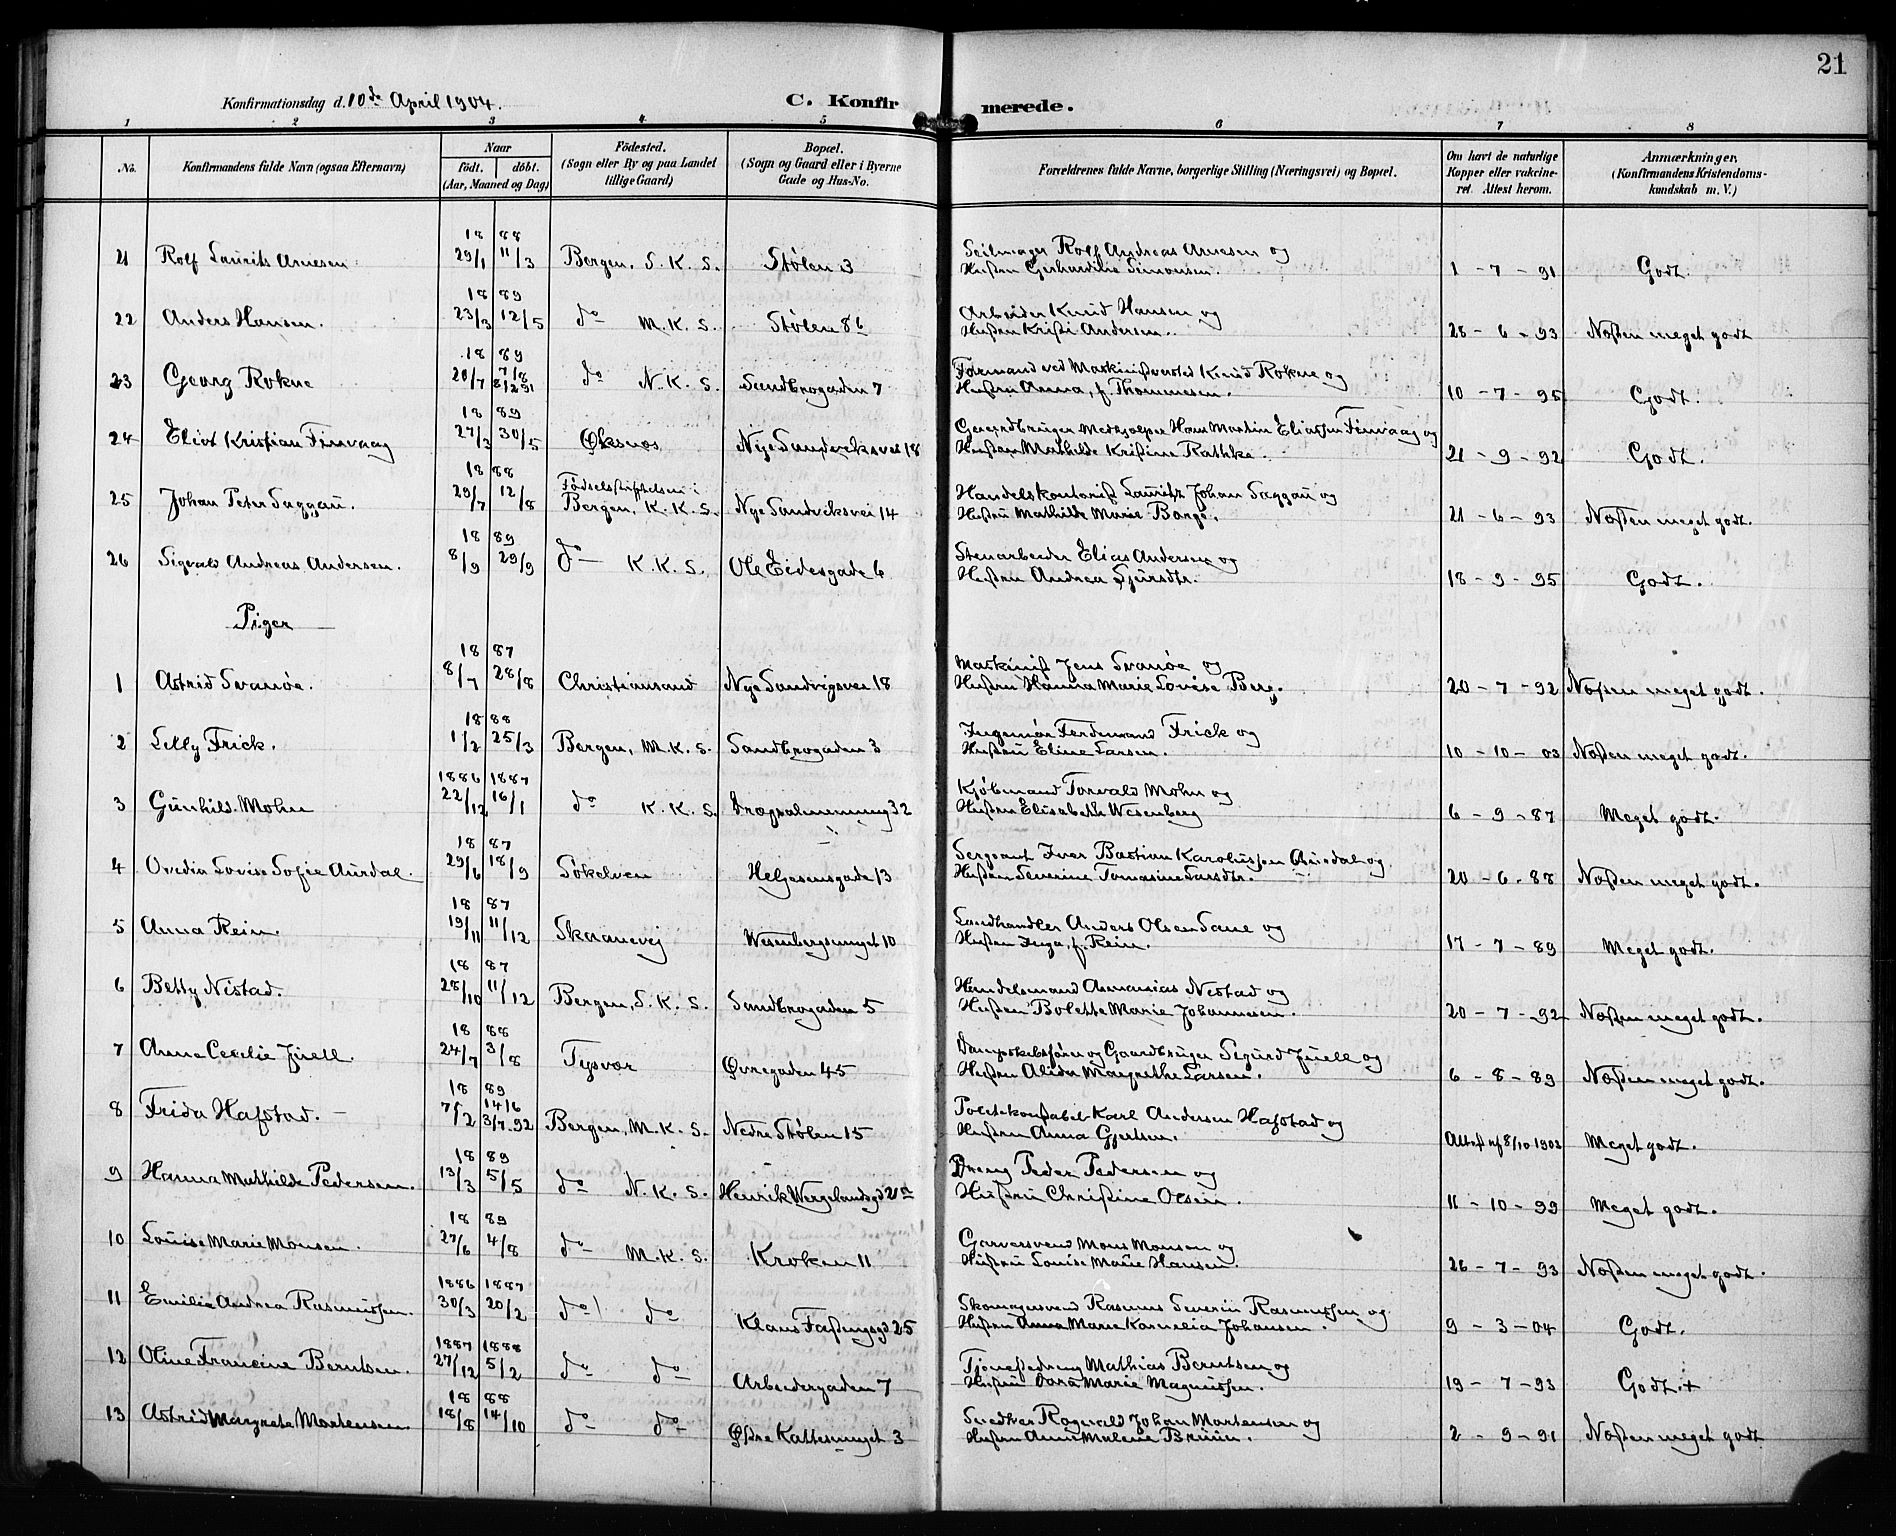 21
Konfirmationsdag d. 10de April 1904.
C. Konfirmerede.
1 2 3 4 5 6 7 8
No. Konfirmandens fulde Navn (ogsaa Efternavn) Naar født. døbt. (Aar, Maaned og Dag) Fødested. (Sogn eller By og paa Landet tillige Gaard) Bopæl. (Sogn og Gaard eller i Byerne Gade og Hus-No. Forældrenes fulde Navne, borgerlige Stilling (Næringsvei) og Bopæl. Om havt de naturlige Kopper eller vakcineret. Attest herom. Anmærkninger, (Konfirmandens Kristendomskundskab m. V.)
18 88
21 Rolf Laurits Arnesen 29/1 11/3 Bergen, S. K. S. Stølen 3 Seilmager Rolf Andreas Arnesen og
Hustru Gerhardine Simonsen. 1 - 7 - 91 Godt.
18 89
22 Anders Hansen. 23/3 12/5 do M. K. S. Stølen 8b Arbeider Knud Hansen og
Hustru Kristi Andersen. 28 - 6 - 93 Næsten meget godt
18 89
23 Georg Rokne 20/7 7/8 8/2 91 do N. K. S. Sandbrogaden 7 Formand ved Maskinistverksted Knud Rokne og
Hustru Anna, f. Thommesen. 10 - 7 - 95 Godt.
18 89
24 Elias Kristian Finvaag 27/3 30/5 Øksnes Nye Sandviksvei 18 Hans Martin Eliassen Finvaag og
Hustru Mathilde Kristine Rathke. 21 - 9 - 92 Godt.
18 88
25 Johan Peter Saggau. 29/7 12/8 Fødselsstiftelsen i Bergen, K. K. S. Nye Sandviksvei 14 Handelskontorist Lauritz Johan Saggau og
Hustru Mathilde Marie Borge. 21 - 6 - 93 Næsten meget godt.
18 89
26 Sigvald Andreas Andersen. 8/9 29/9 do K. K. S. Ole Eidesgade 6 Stenarbeider Elias Andersen og
Hustru Andrea Sjursdtr. 18 - 9 - 95 Godt.
Piger
18 87
1 Astrid Svanøe. 8/7 28/8 Christiansand Nye Sandvigsvei 18 Maskinist Jens Svanøe og
Hustru Hanna Marie Lovise Berg. 20 - 7 - 92 Næsten meget godt.
18 88
2 Lilly Frick. 1/2 25/3 Bergen, M. K. S. Sandbrogaden 3 Ingeniør Ferdinand Frick og
Hustru Eline Larsen. 10 - 10 - 03 Næsten meget godt.
1886 1887
3 Gunhild Mohn 22/12 16/1 do K. K. S. 32 Kjøbmand Torvald Mohn og
Hustru Elisabeth Wesenberg 6 - 9 - 87 Meget godt.
18 87
4 Ovedia Lovise Sofie Aurdal. 29/6 18/9 Søkelven Helgesensgade 13 Sergeant Iver Bastian Karolussen Aurdal og
Hustru Severine Tomasine Larsdtr. 20 - 6 - 88 Næsten meget godt.
18 87
5 Anna Rein. 19/11 11/12 Skaanevej Wesenbergsmuget 10 Landhandler Anders Olsen Sane og
Hustru Inga, f. Rein. 17 - 7 - 89 Meget godt.
18 87
6 Betty Nistad. 28/10 11/12 Bergen, S. K. S. Sandbrogaden 5 Handelsmand Asmanias Nestad og
Hustru Bolette Marie Johannesen. 20 - 7 - 92 Næsten meget godt.
18 88
7 Anna Cecilie Juell. 24/7 3/8 Tysvær Øvregaden 45 Dampskibsfører og Gaardbruger Sigurd Juell og
Hustru Alida Margrethe Larsen. 6 - 8 - 89 Næsten meget godt.
18 89
8 Frida Hafstad. 7/2 14/6 3/7.92 Bergen, M. K. S. Nedre Stølen 15 Politikonstabel Karl Andersen Hafstad og
Hustru Anna Gjertsen. Attest af 8/10 1903 Meget godt.
18 89
9 Hanna Mathilde Pedersen. 13/3 5/5 do N. K. S. Henrik Wergelandsgd 21a Dreng Peder Pedersen og
Hustru Christine Olsen. 11 - 10 - 99 Meget godt.
18 89
10 Louise Marie Monsen. 27/6 4/8 do M. K. S. Kroken 11 Garversvend Mons Monsen og
Hustru Louise Marie Hansen. 26 - 7 - 93 Næsten meget godt.
1886 1887
11 Emilie Andrea Rasmussen. 30/3 20/2 do do Klaus Fastingsgd 25 Skomagersvend Rasmus Severin Rasmussen og
Hustru Anna Marie Karnelia Johansen. 9 - 3 - 04 Godt.
1887 1888
12 Oline Francine Berntsen. 27/12 5/2 do do Arbeidergaden 7 Tjenestedreng Mathias Berntsen og
Hustru Dora Marie Magnussen. 19 - 7 - 93 Godt. +
18 88
13 Astrid Margrete Mortensen. 18/8 14/10 do do Østre Kattesmuget 3 Snedker Ragnvald Johan Mortensen og
Hustru Anne Malene Bruun. 2 - 9 - 91 Næsten meget godt